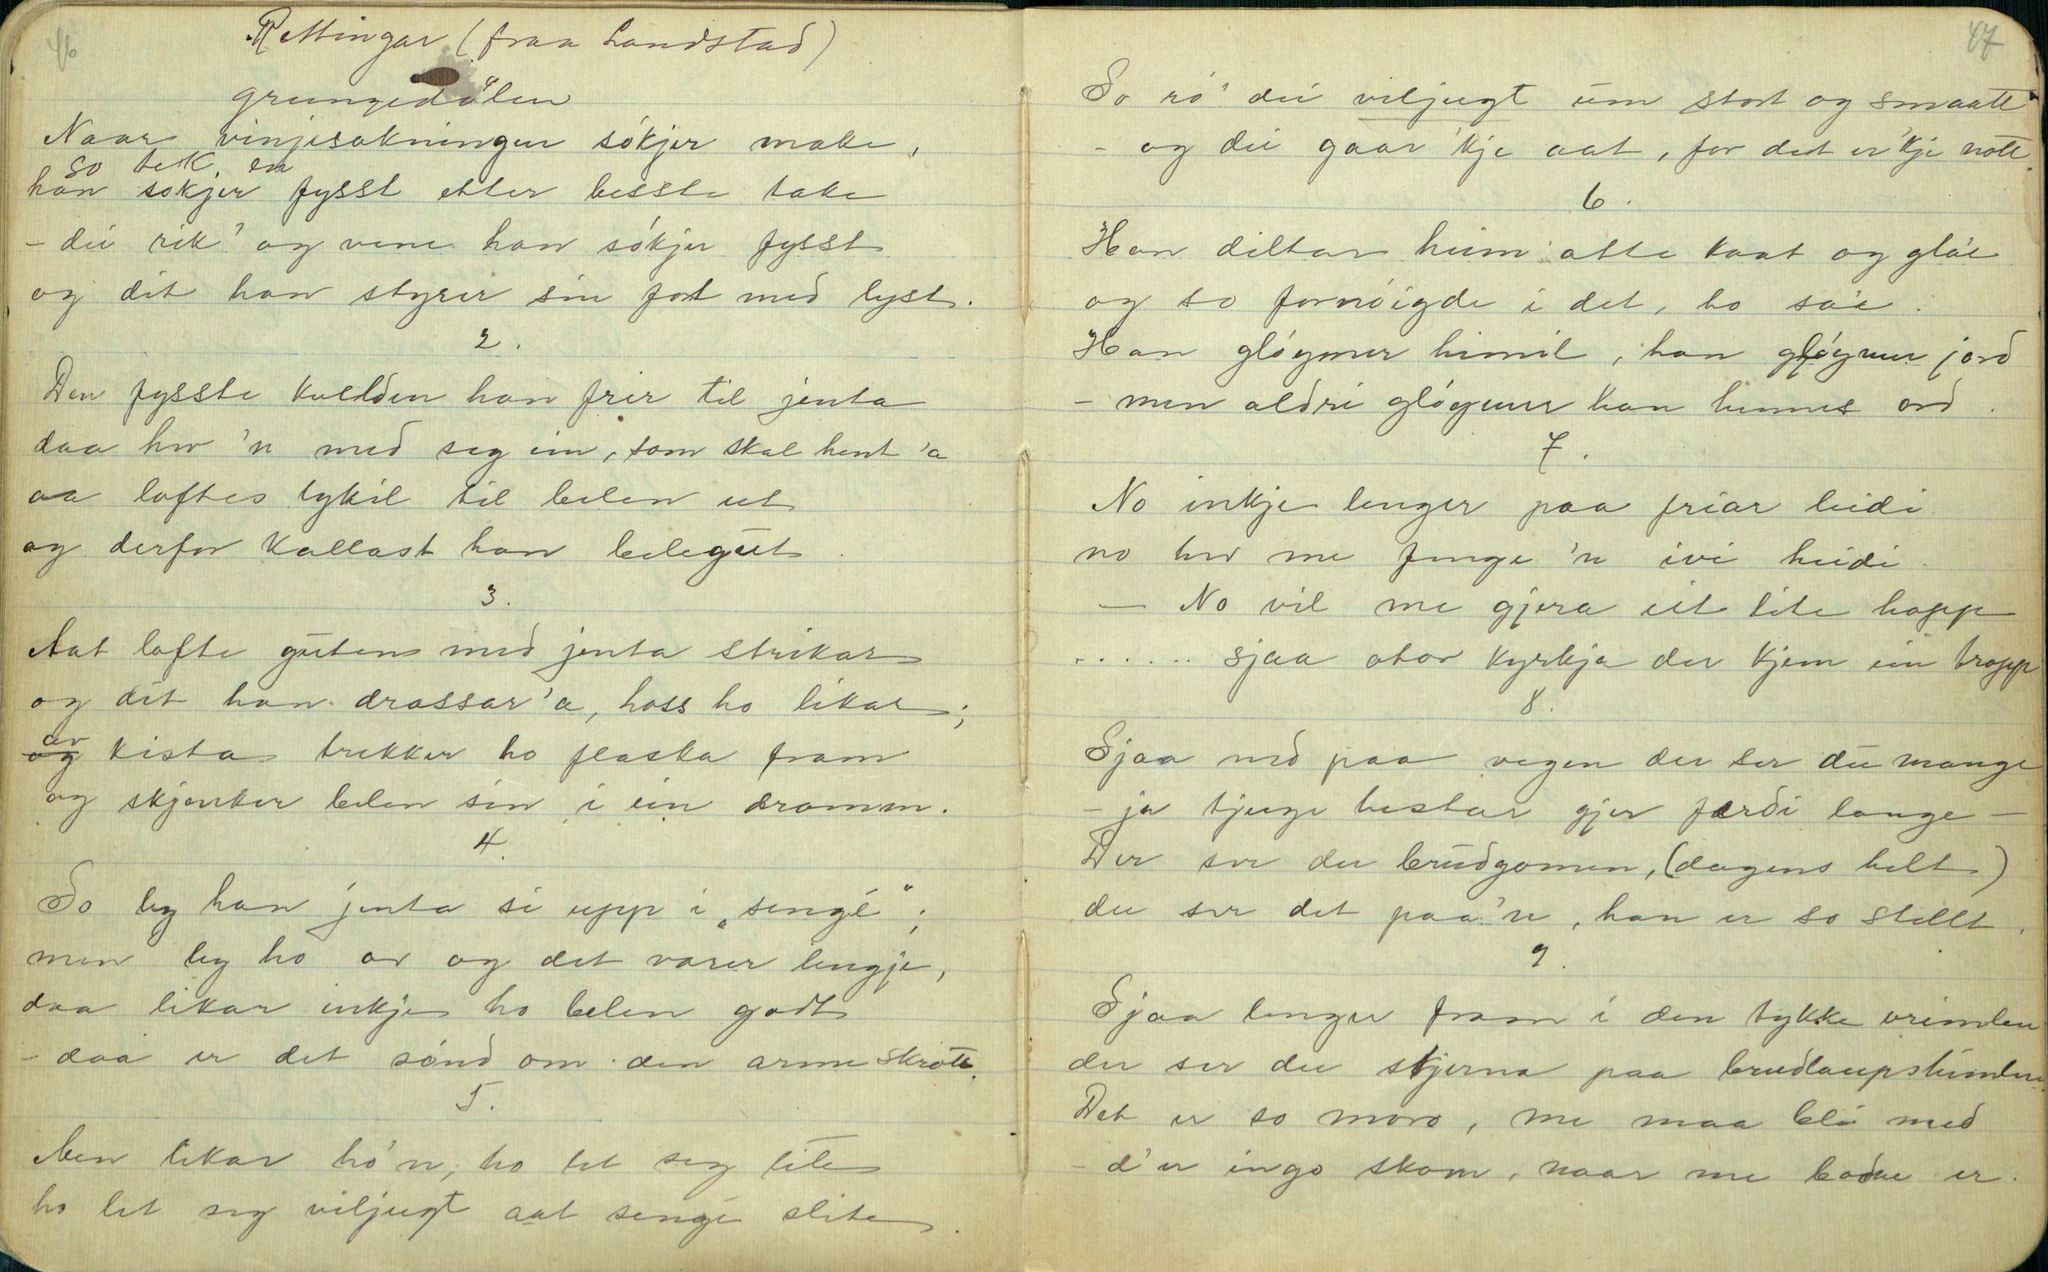 46
Rettingar (fraa Landstad)
grungedölen
Naar vinjesokningen sökjer make,
so tek en
han sökjer fysst etter besste take
- dei rik' og vene han sökjer fysst
og dit han styrer sin fot med lyst.
2.
Den fysste kvelden han frir til jenta
daa hev 'n med seg ein, som skal hent 'a
aa loftes lykil til belen ut
og derfor kallast han belegut.
3.
Aat lofte guten med jenta strikar
og dit han drassar 'a, hoss ho likar;
av
og kista trekker ho flaska fram
og skjenker belen sin i ein dramm.
4.
So leg han jenta si upp i „sengé";
men leg ho av og det varer lengje,
daa likar inkje ho belen godt
- daa er det sönd om den arme skrott.
5.
Men likar ho 'n, ho let seg lite
ho let seg viljugt aat sengé slite.
47
So rö' dei viljugt um stort og smaatt
- og dei gaar 'kje aat, for det er 'kje nott.
6.
Han diltar heim atte kaat og gla'e
og so fornöigde i det, ho sa'e.
Han glöymer himil, han glöymer jord
- men aldri glöymer han hennes ord.
7.
No inkje lenger paa friar leidi
no hev me fenge 'n ivi heidi.
- No vil me gjera eit lite hopp
...... sjaa otor kyrkja der kjem ein tropp
8.
Sjaa ned paa vegen der ser du mange
- ja tjuge hestar gjer færdi lange -
Der ser du brudgomen, (dagens helt)
du ser det paa 'n, han er so stellt.
9.
Sjaa lenger fram i den tykke vrimlen
der ser du stjerna paa brudlaupshimlen.
Det er so moro, me maa bli med
- d'er ingo skam, naar me bodne er.